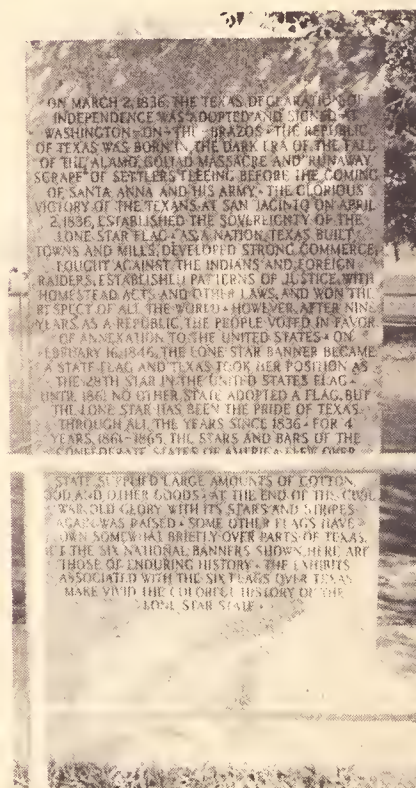 ON MARCH 2, 1836, THE TEXAS DECLARATION OF
INDEPENDENCE WAS ADOPTED AND SIGNED AT
WASHINGTON-ON-THE-BRAZOS • THE REPUBLIC
OF TEXAS WAS BORN IN THE DARK ERA OF THE FALL
OF THE ALAMO, GOLIAD MASSACRE AND RUNAWAY
SCRAPE OF SETTLERS FLEEING BEFORE THE COMING
OF SANTA ANNA AND HIS ARMY • THE GLORIOUS
VICTORY OF THE TEXANS AT SAN JACINTO ON APRIL
2, 1836, ESTABLISHED THE SOVEREIGNTY OF THE
LONE STAR FLAG • AS A NATION, TEXAS BUILT
TOWNS AND MILLS, DEVELOPED STRONG COMMERCE,
FOUGHT AGAINST THE INDIANS AND FOREIGN
RAIDERS, ESTABLISHED PATTERNS OF JUSTICE, WITH
HOMESTEAD ACTS AND OTHER LAWS, AND WON THE
RESPECT OF ALL THE WORLD • HOWEVER, AFTER NINE
YEARS AS A REPUBLIC, THE PEOPLE VOTED IN FAVOR
OF ANNEXATION TO THE UNITED STATES • ON
FEBRUARY 16, 1846, THE LONE STAR BANNER BECAME
A STATE FLAG AND TEXAS TOOK HER POSITION AS
THE 28TH STAR IN THE UNITED STATES FLAG •
UNTIL 1861 NO OTHER STATE ADOPTED A FLAG, BUT
THE LONE STAR HAS BEEN THE PRIDE OF TEXAS
THROUGH ALL THE YEARS SINCE 1836 • FOR 4
YEARS, 1861-1865, THE STARS AND BARS OF THE
CONFEDERATE STATES OF AMERICA FLEW OVER
STATE SUPPLIED LARGE AMOUNTS OF COTTON,
OOD AND OTHER GOODS • AT THE END OF THE CIVIL
WAR OLD GLORY WITH ITS STARS AND STRIPES
AGAIN WAS RAISED • SOME OTHER FLAGS HAVE
OWN SOMEWHAT BRIEFLY OVER PARTS OF TEXAS,
THE SIX NATIONAL BANNERS SHOWN HERE ARE
THOSE OF ENDURING HISTORY • THE EXHIBITS
ASSOCIATED WITH THE SIX FLAGS OVER TEXAS
MAKE VIVID THE COLORFUL HISTORY OF THE
LONE STAR STATE •